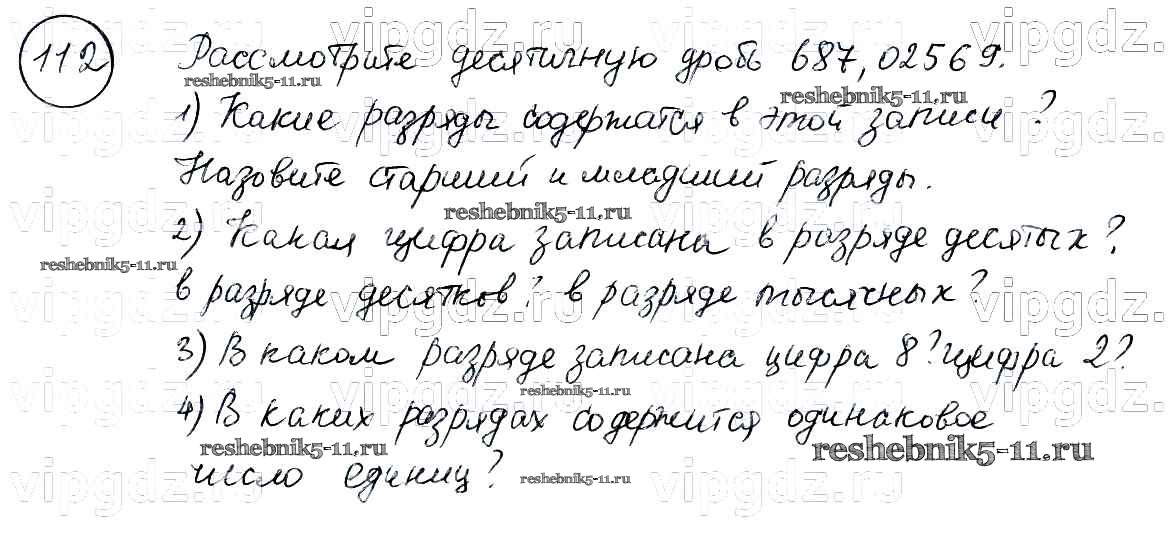 112 Рассмотрите десятичную дробь 687,02569.
1) Какие разряды содержатся в этой записи?
Назовите старший и младший разряды.
2) Какая цифра записана в разряде десятых?
в разряде десятков? в разряде тысячных?
3) В каком разряде записана цифра 8? цифра 2?
4) В каких разрядах содержится одинаковое
число единиц?
vipgdz.ru
reshebnik5-11.ru